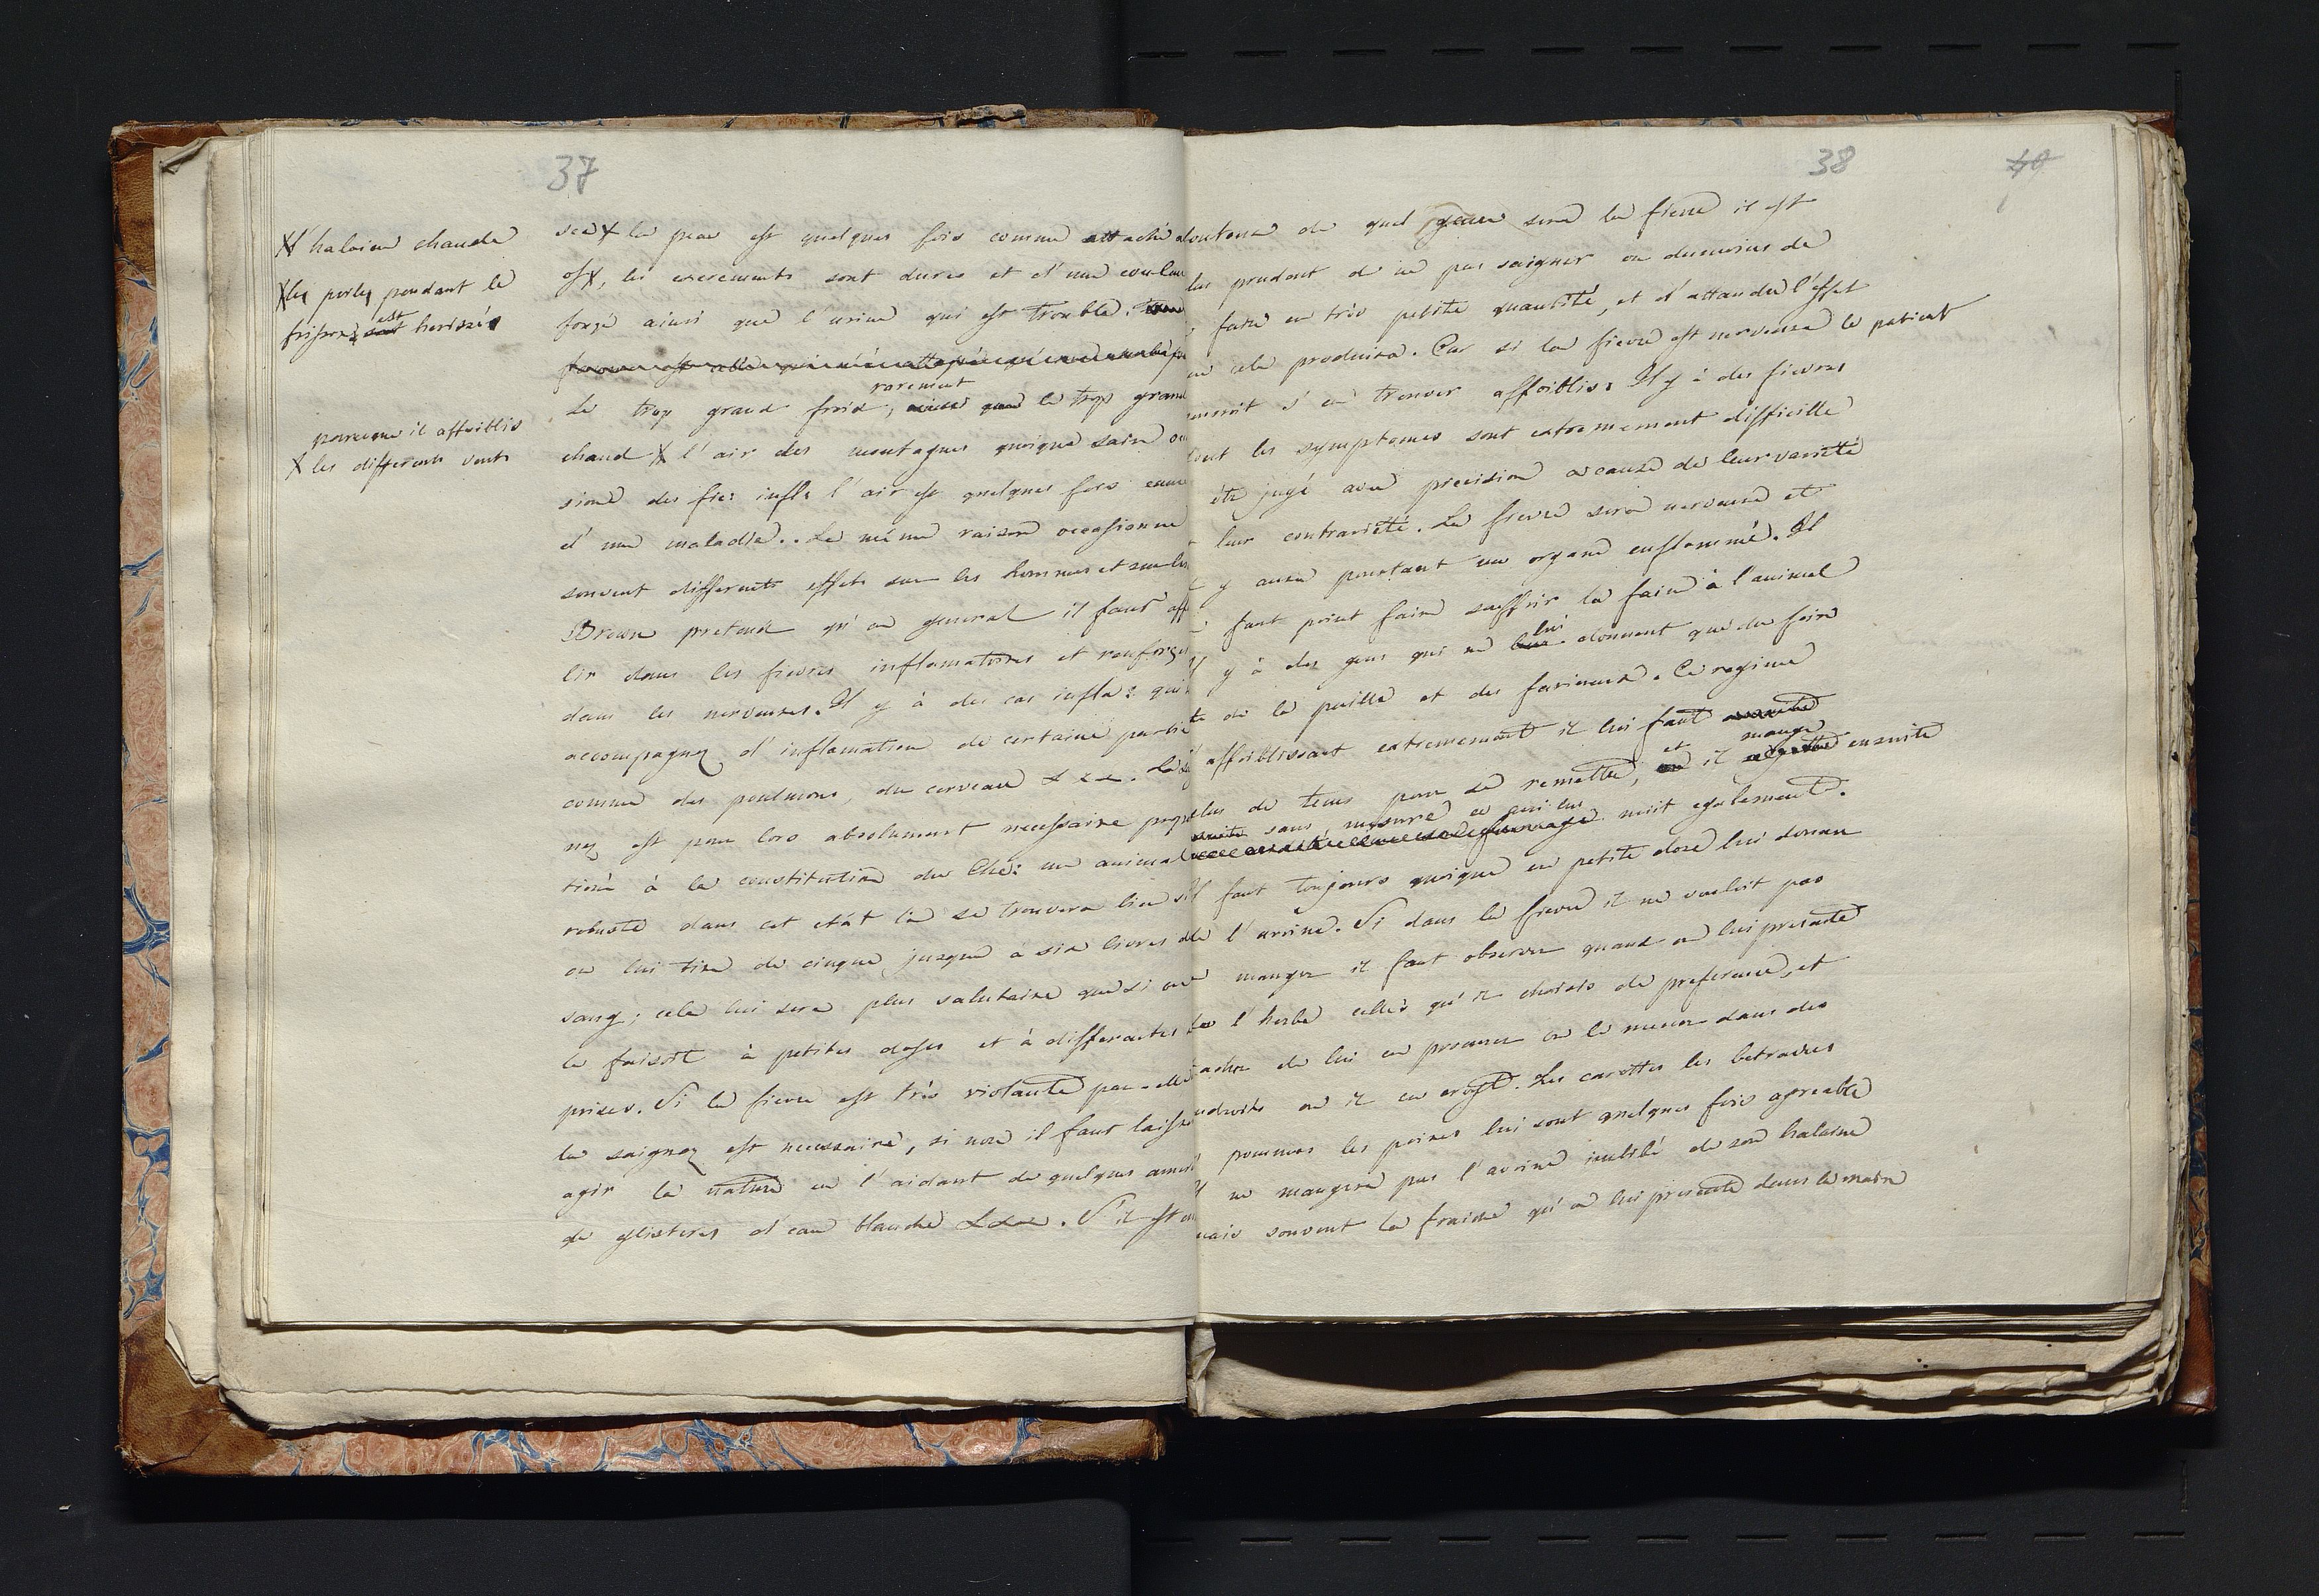 37
X l'haleine chaude
X les poiles pendant le
frissons est herissés
parceque il affoiblis
X les differents vents
sec X la peau est quelques fois comme attaché
os X, les excrements sont dures et d'une couleu
forgé ainsi que l'urine qui est trouble.
Le trop grand froid, rarement le trop grand
chaud X l'air des montagnes quoique saine
sione des fie: infl: l'air est quelques fois cause
d'une maladie.. La même raison occassionne
souvent differents effets sur les hommes et sur les
Brown pretend qu'en general il faut aff
lir dans les fievres inflamatoires et renforçer
dans les nerveuses. Il y à des cas infla: qui
accompagnez d'inflamation de certaine partie
comme des poulmons, du cerveau &&&. La
nez est pour lors absolument necessaire propor
tioné à la constitution du Che: un animal
robuste dans cet etát là se trouvera bien si
on lui tire de cinque jusqua à six livres de
sang; cela lui sera plus salutaire que si on
le faisoit à petites doses et à differantes
prises. Si la fievre est très violante par-elle
la saignez est necessaire, si non il faut laisser
agir la nature en l'aidant de quelques
de glisteres d'eau blanche &&&. S'il est en
38
40
douteux de quel genre sera la fievre il est
plus prudant de ne pas saigner ou dumoins de
faire en très petite quantité, et d'attandre l'effet
que cela produira. Car si la fievre est nerveuse le patient
pouroit s'en trouver affoiblis. Il y à des fievres
dont les symptomes sont extremement difficille
être jugé avec precision a cause de leur varieté
leur contrarieté. La fievre sera nerveuse et
y aura pourtant un organe enflammé. Il
faut point faire souffrir la faim à l'animal
Il y à des gens qui ne lui donnent que du foin
de la paille et des farineux. Ce regime
affoiblissant extremement il lui faut
plus de tems pour se remettre, et il mange ensuite
sans mesure ce qui lui nuit egalement.
Il faut toujours quoique en petite dose lui donner
de l'avoine. Si dans la fievre il ne vouloit pas
manger il faut observer quand on lui presante
de l'herbe celles qu'il choisis de preference, et
tacher de lui en procurer ou le mener dans des
endroits ou il en croyt. Les carottes les betraves
pommes les poires lui sont quelques fois agreable
Il ne mangera pas l'avoine imbibé de son haleine
mais souvent la fraiche qu'on lui presente dans la main